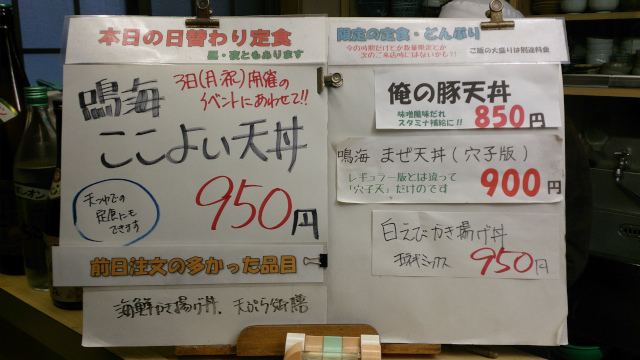 本日の日替わり定食
昼・夜ともあります
3日(月・祝)開催の
イベントにあわせて!!
鳴海
ここよい天丼
950円
天つゆでの
定食にも
できます
前日注文の多かった品目
海鮮かき揚げ丼、天ぷら定食
限定の定食・どんぶり
今の時期だけとか数量限定とか
次のご来店時にはないかも?!
ご飯の大盛りは別途料金
俺の豚天丼
味噌風味だれ
スタミナ補給に!!
850円
鳴海 まぜ天丼(穴子版)
レギュラー版とは違って
「穴子天」だけのです
900円
白えびかき揚げ丼
950円